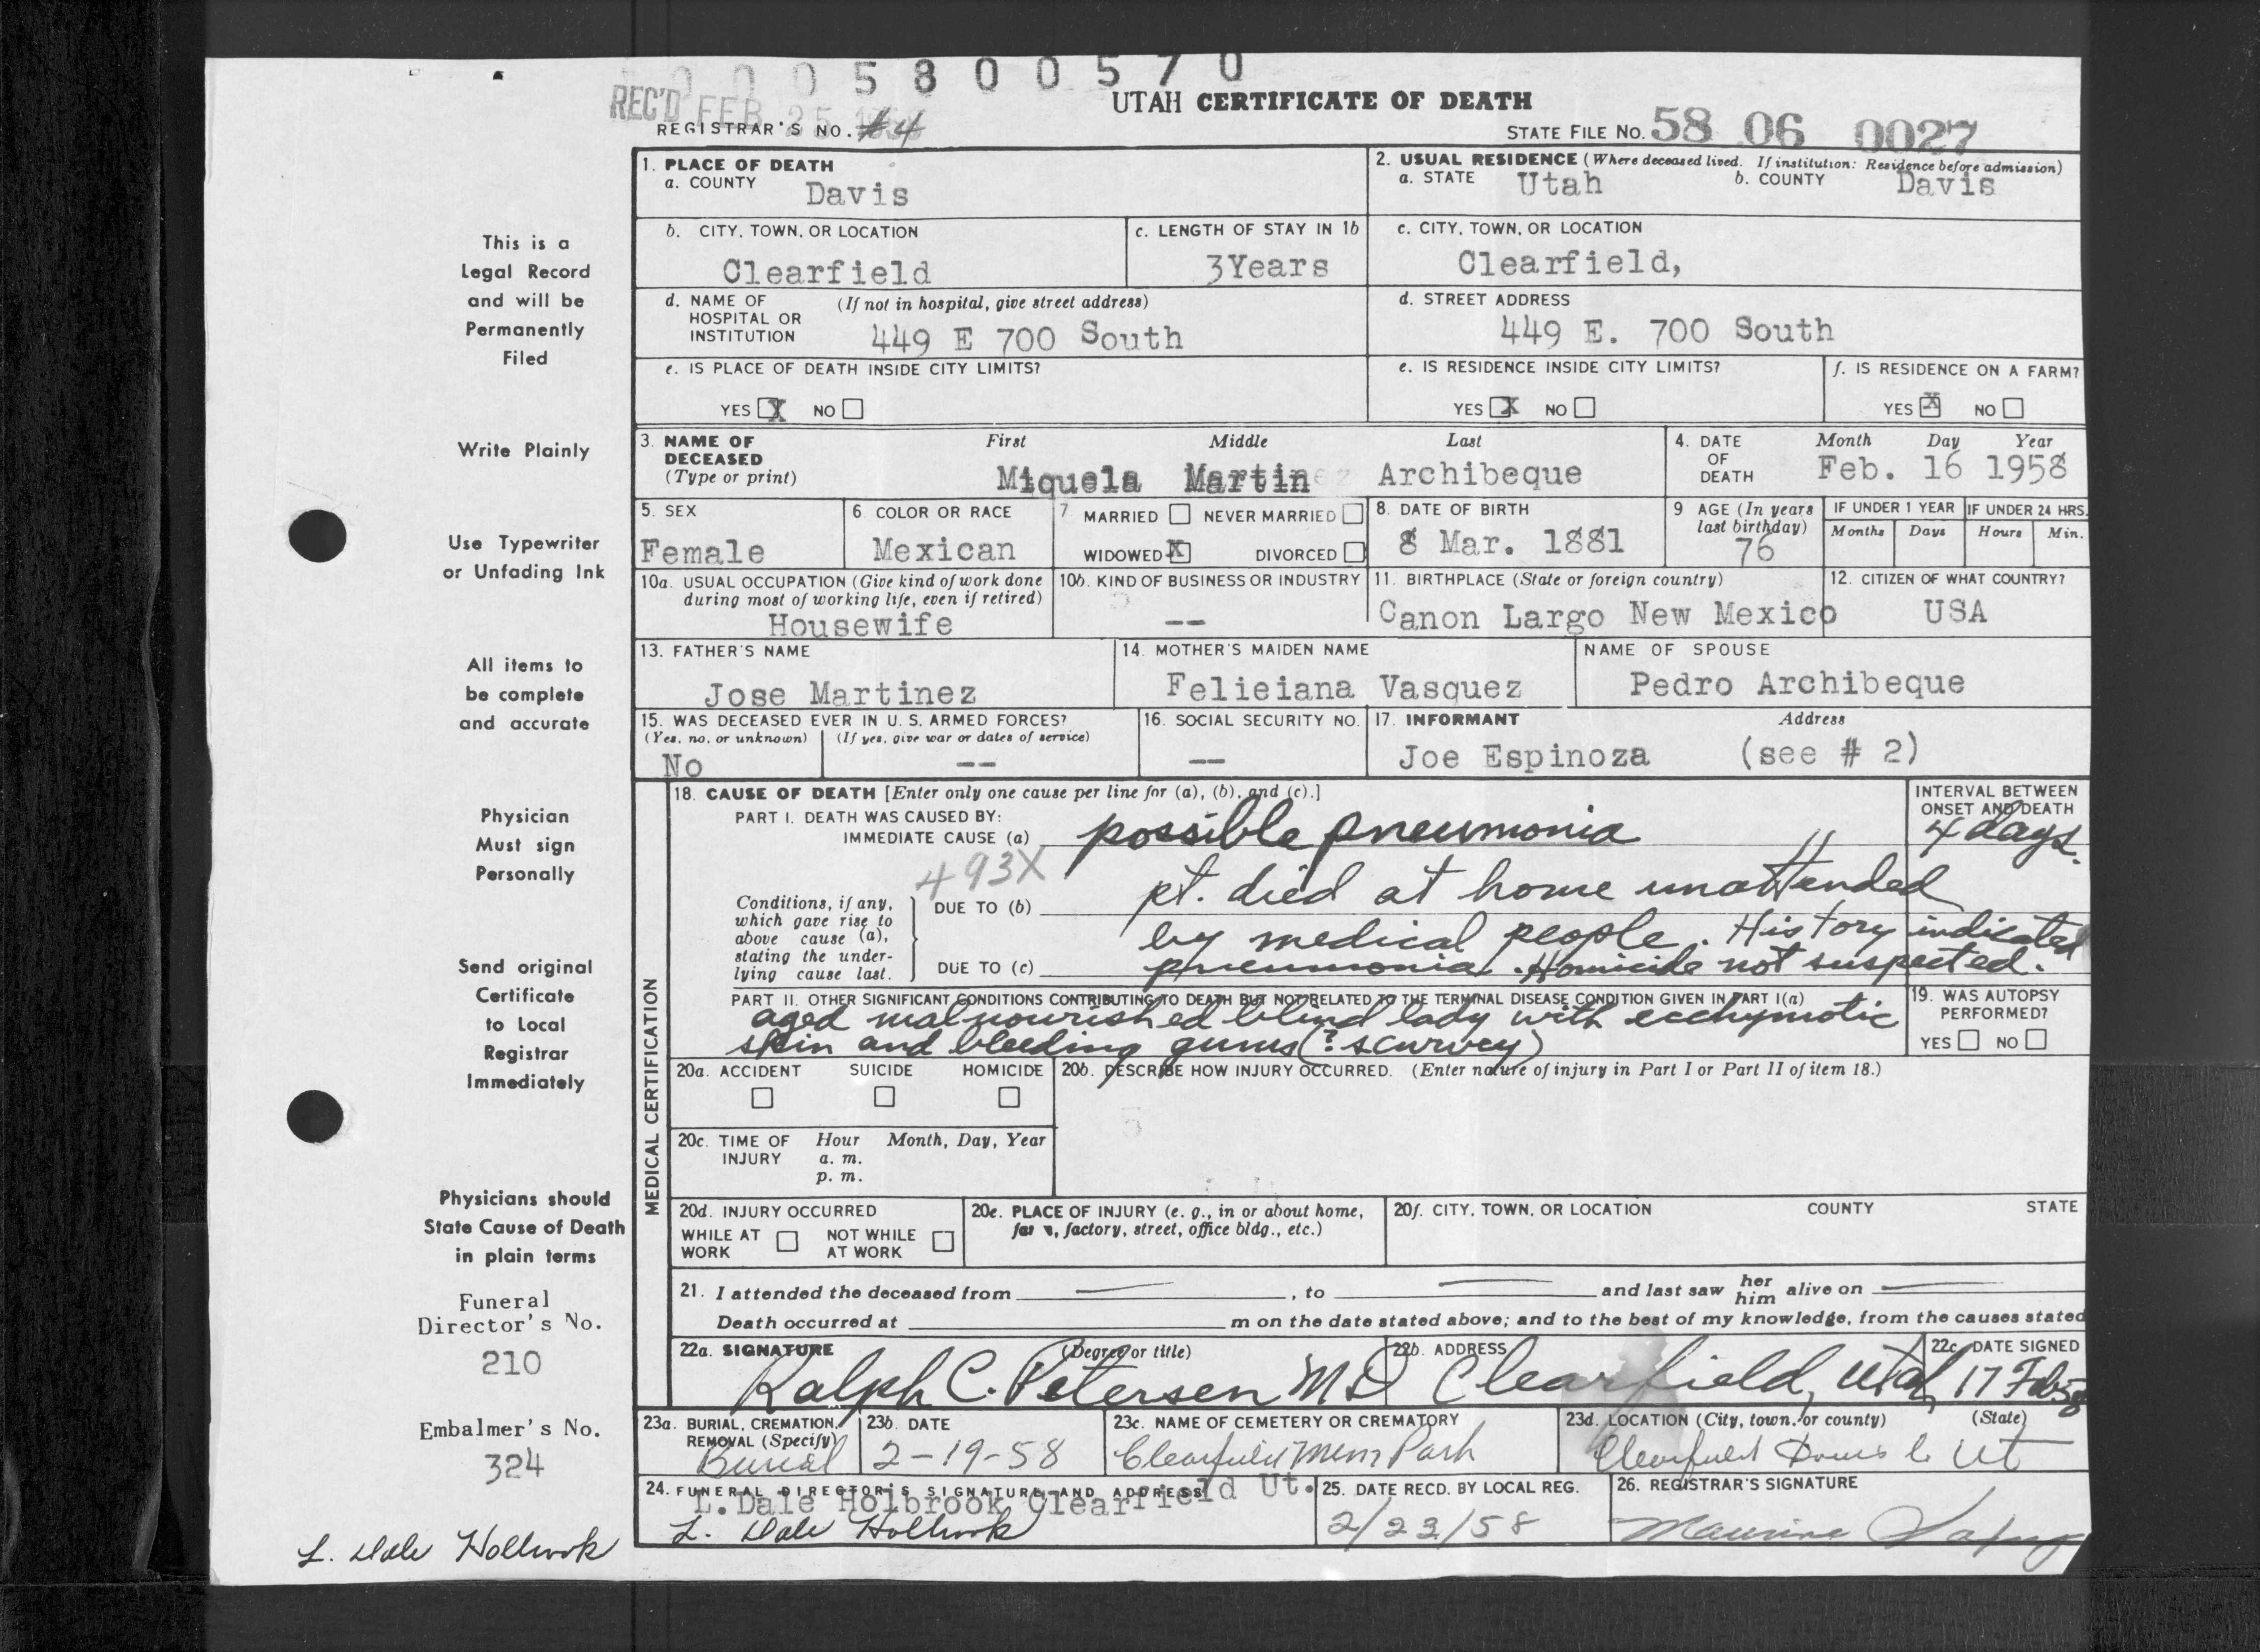 0005800570
REC'D FEB 25 1958
UTAH CERTIFICATE OF DEATH
REGISTRAR'S NO. #4
STATE FILE NO. 58 06 0027
1. PLACE OF DEATH
a. COUNTY Davis
2. USUAL RESIDENCE (Where deceased lived. If institution: Residence before admission)
a. STATE Utah b. COUNTY Davis
b. CITY, TOWN, OR LOCATION Clearfield
c. LENGTH OF STAY IN 1b 3Years
c. CITY, TOWN, OR LOCATION Clearfield,
d. NAME OF HOSPITAL OR INSTITUTION (If not in hospital, give street address) 449 E 700 South
d. STREET ADDRESS 449 E. 700 South
e. IS PLACE OF DEATH INSIDE CITY LIMITS?
YES X NO
e. IS RESIDENCE INSIDE CITY LIMITS?
YES X NO
f. IS RESIDENCE ON A FARM?
YES X NO
3. NAME OF DECEASED (Type or print) First Middle Last
Miquela Martinez Archibeque
4. DATE OF DEATH Month Day Year
Feb. 16 1958
5. SEX Female
6. COLOR OR RACE Mexican
7. MARRIED NEVER MARRIED
WIDOWED X DIVORCED
8. DATE OF BIRTH 8 Mar. 1881
9 AGE (In years last birthday) 76
IF UNDER 1 YEAR Months Days
IF UNDER 24 HRS. Hours Min.
10a. USUAL OCCUPATION (Give kind of work done during most of working life, even if retired) Housewife
10b. KIND OF BUSINESS OR INDUSTRY --
11. BIRTHPLACE (State or foreign country) Canon Largo New Mexico
12. CITIZEN OF WHAT COUNTRY? USA
13. FATHER'S NAME Jose Martinez
14. MOTHER'S MAIDEN NAME Felieiana Vasquez
NAME OF SPOUSE Pedro Archibeque
15. WAS DECEASED EVER IN U. S. ARMED FORCES?
(Yes, no, or unknown) (If yes, give war or dates of service)
No --
16. SOCIAL SECURITY NO. --
17. INFORMANT Address
Joe Espinoza (see # 2)
MEDICAL CERTIFICATION
18. CAUSE OF DEATH [Enter only one cause per line for (a), (b), and (c).]
INTERVAL BETWEEN ONSET AND DEATH
PART I. DEATH WAS CAUSED BY:
IMMEDIATE CAUSE (a) possible pneumonia 4 days.
493X
Conditions, if any, which gave rise to above cause (a), stating the underlying cause last.
DUE TO (b) pt. died at home unattended
by medical people. History indicated
DUE TO (c) pneumonia. Homicide not suspected.
PART II. OTHER SIGNIFICANT CONDITIONS CONTRIBUTING TO DEATH BUT NOT RELATED TO THE TERMINAL DISEASE CONDITION GIVEN IN PART I(a)
aged malnourished blind lady with ecchymotic
skin and bleeding gums (? scurvey)
19. WAS AUTOPSY PERFORMED?
YES NO
20a. ACCIDENT SUICIDE HOMICIDE
20b. DESCRIBE HOW INJURY OCCURRED. (Enter nature of injury in Part I or Part II of item 18.)
20c. TIME OF INJURY Hour a. m. p. m. Month, Day, Year
20d. INJURY OCCURRED
WHILE AT WORK NOT WHILE AT WORK
20e. PLACE OF INJURY (e. g., in or about home, farm, factory, street, office bldg., etc.)
20f. CITY, TOWN, OR LOCATION COUNTY STATE
21. I attended the deceased from — , to — and last saw her him alive on —
Death occurred at m on the date stated above; and to the best of my knowledge, from the causes stated
22a. SIGNATURE (Degree or title) Ralph C. Petersen MD
22b. ADDRESS Clearfield, Utah
22c. DATE SIGNED 17 Feb 58
23a. BURIAL, CREMATION, REMOVAL (Specify) Burial
23b. DATE 2-19-58
23c. NAME OF CEMETERY OR CREMATORY Clearfield Mem Park
23d. LOCATION (City, town, or county) (State) Clearfield Davis Co Ut
24. FUNERAL DIRECTOR'S SIGNATURE AND ADDRESS
L. Dale Holbrook Clearfield Ut.
L. Dale Holbrook
25. DATE RECD. BY LOCAL REG. 2/23/58
26. REGISTRAR'S SIGNATURE Maurine
This is a
Legal Record
and will be
Permanently
Filed
Write Plainly
Use Typewriter
or Unfading Ink
All items to
be complete
and accurate
Physician
Must sign
Personally
Send original
Certificate
to Local
Registrar
Immediately
Physicians should
State Cause of Death
in plain terms
Funeral
Director's No.
210
Embalmer's No.
324
L. Dale Holbrook